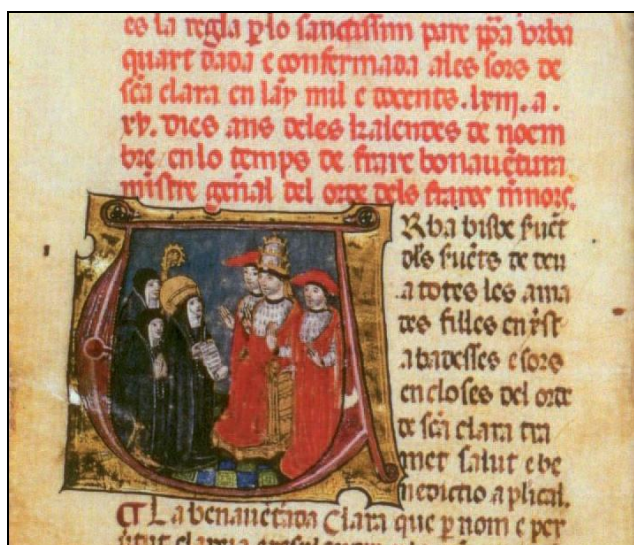 es la regla p lo sanctissim pare ppa vrba
quart dada e confermada ales sors de
sca clara en lany mil e docents. lxiii. a.
xv. dies ans deles kalendes de noem
bre en lo temps de frare bonauētura
mistre genal del orde dels frares menors.
Rba bisbe suēt
dels suēts de deu
a totes les ama
des filles en xst
abadesses e sors
encloses del orde
de sca clara tra
met salut e be
nedictio aplical.
La benauētada Clara que p nom e per